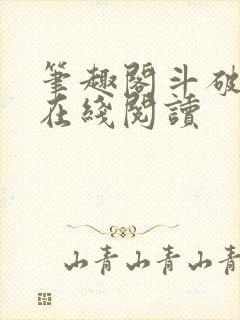 筆趣閣斗破
在綫閱讀
山青山青山青